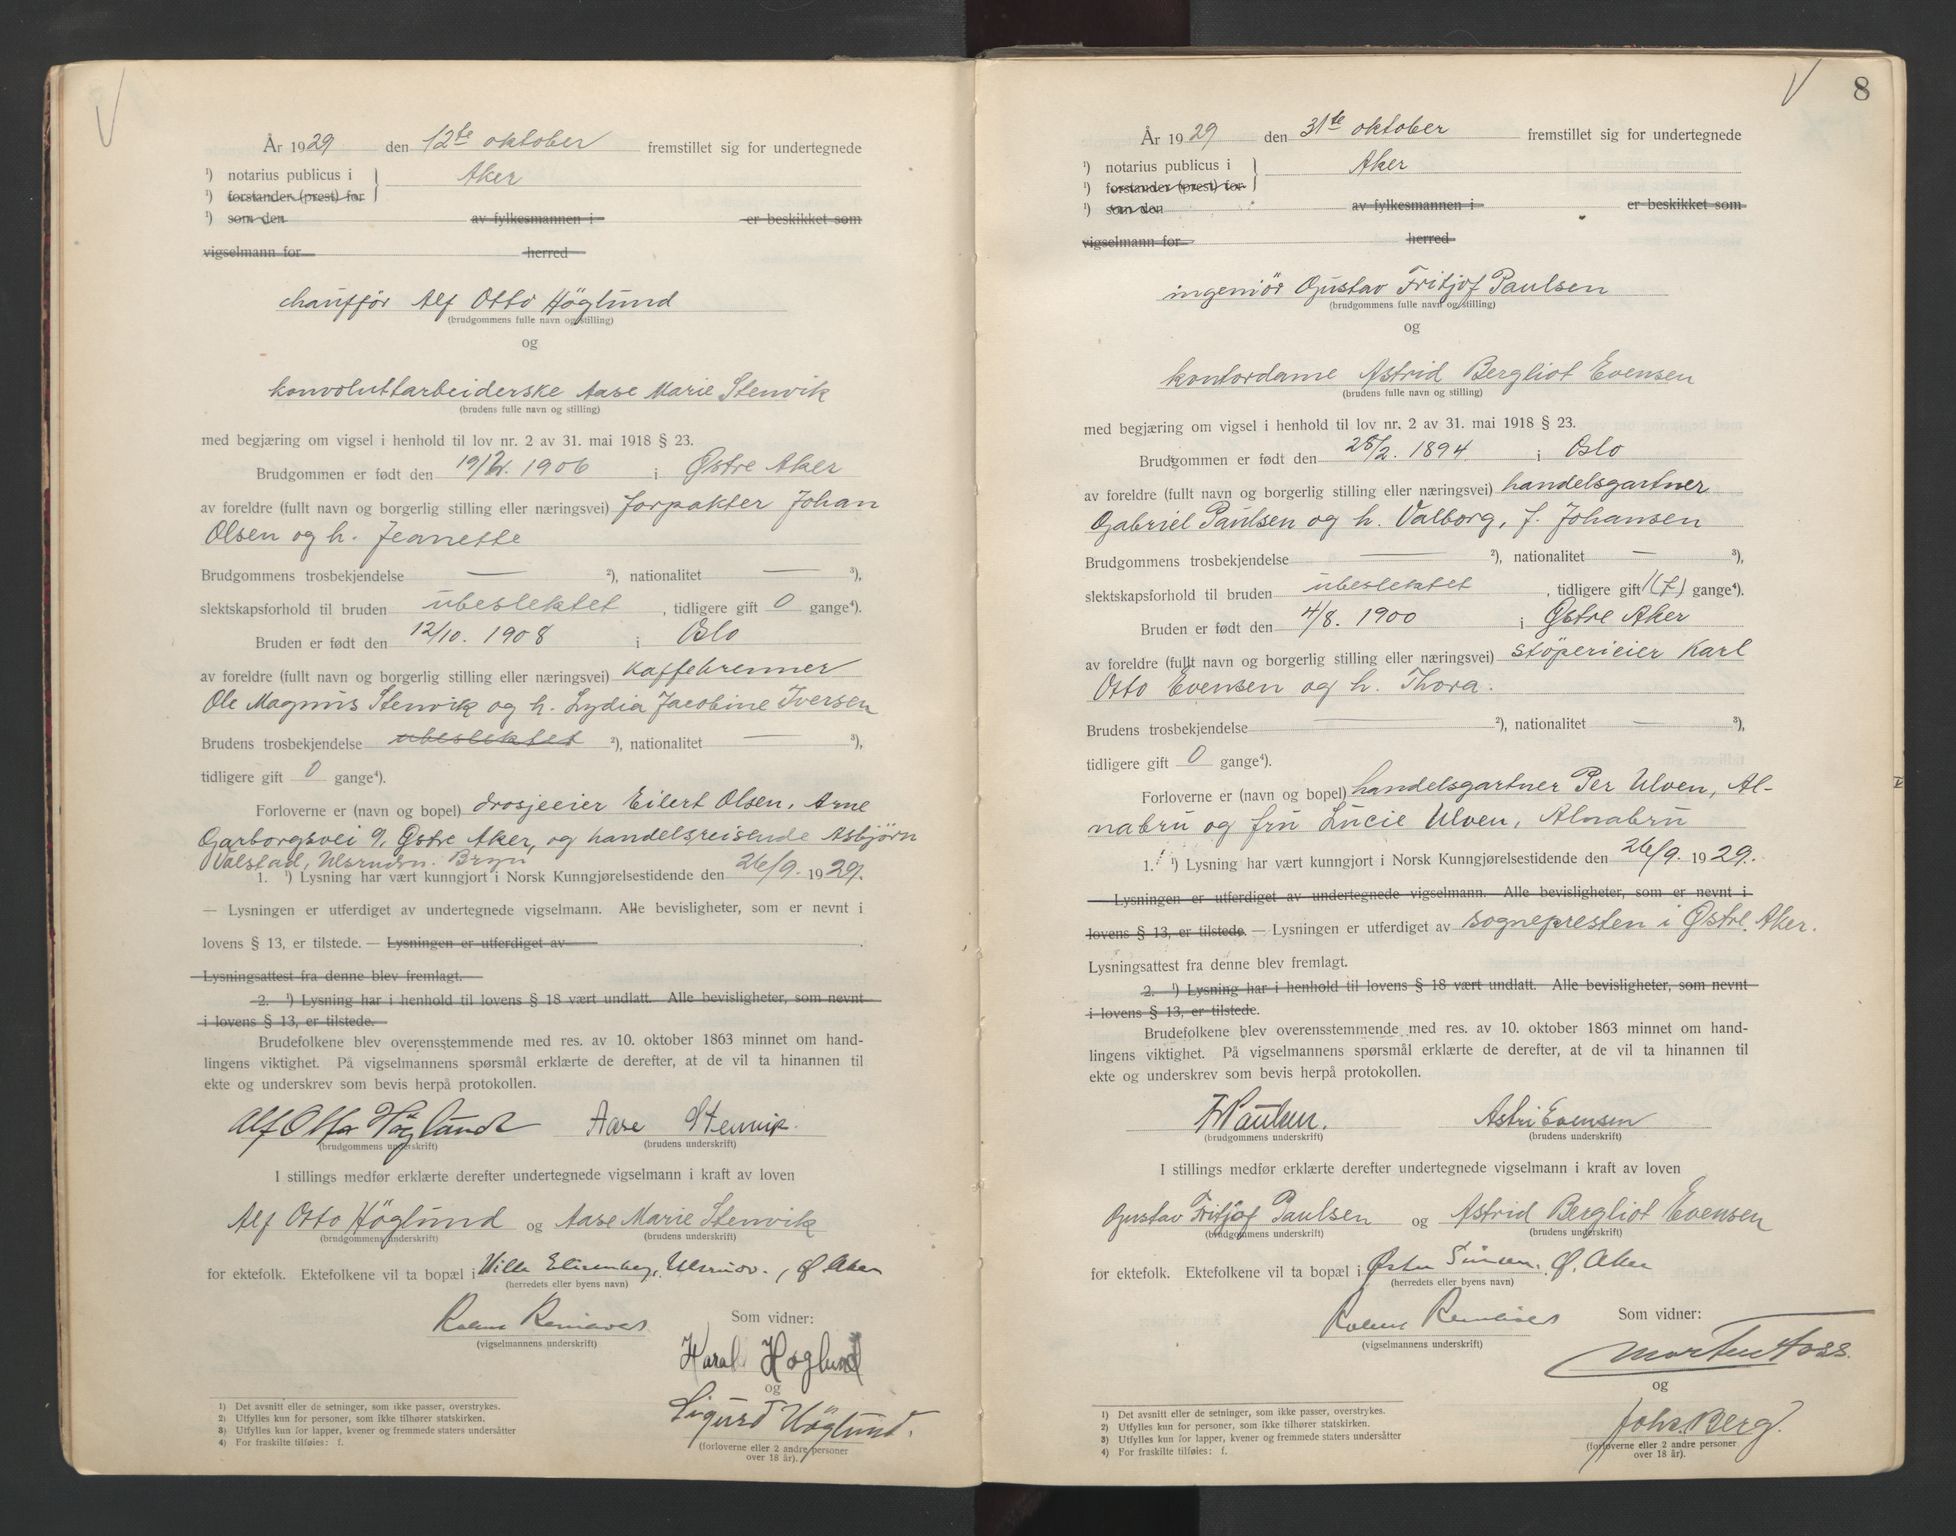 År 1929 den 12te oktober fremstillet sig for undertegnede
¹) notarius publicus i Aker
¹) forstander (prest) for
¹) som den av fylkesmannen i er beskikket som
vigselmann for herred
chaufför Alf Otto Höglund
(brudgommens fulle navn og stilling)
og
konvoluttarbeiderske Aase Marie Stenvik
(brudens fulle navn og stilling)
med begjæring om vigsel i henhold til lov nr. 2 av 31. mai 1918 § 23.
Brudgommen er født den 1906 i Østre Aker
av foreldre (fullt navn og borgerlig stilling eller næringsvei) forpakter Johan
Olsen og h. Jeanette
Brudgommens trosbekjendelse — ²), nationalitet — ³),
slektskapsforhold til bruden ubeslektet, tidligere gift 0 gange⁴).
Bruden er født den 12/10. 1908 i Oslo
av foreldre (fullt navn og borgerlig stilling eller næringsvei) kaffebrenner
Ole Magnus Stenvik og h. Lydia Jacobine Iversen
Brudens trosbekjendelse ubeslektet ²), nationalitet — ³),
tidligere gift 0 gange⁴).
Forloverne er (navn og bopel) drosjeeier Eilert Olsen, Arne
Garborgsvei 9, Østre Aker, og handelsreisende Asbjörn
Valstad, Ulsrudvn. Bryn
1. ¹) Lysning har vært kunngjort i Norsk Kunngjørelsestidende den 26/9. 1929.
— Lysningen er utferdiget av undertegnede vigselmann. Alle bevisligheter, som er nevnt i
lovens § 13, er tilstede. — Lysningen er utferdiget av
Lysningsattest fra denne blev fremlagt.
2. ¹) Lysning har i henhold til lovens § 18 vært undlatt. Alle bevisligheter, som nevnt
i lovens § 13, er tilstede.
Brudefolkene blev overensstemmende med res. av 10. oktober 1863 minnet om hand-
lingens viktighet. På vigselmannens spørsmål erklærte de derefter, at de vil ta hinannen til
ekte og underskrev som bevis herpå protokollen.
Alf Otto Höglund Aase Stenvik.
(brudgommens underskrift) (brudens underskrift)
I stillings medfør erklærte derefter undertegnede vigselmann i kraft av loven
Alf Otto Höglund og Aase Marie Stenvik
(brudgommens underskrift) (brudens underskrift)
for ektefolk. Ektefolkene vil ta bopæl i Ø. Aker
(herredets eller byens navn)
(vigselmannens underskrift)
Som vidner:
Harald Høglund
og
Sigurd Höglund.
(forloverne eller 2 andre personer
over 18 år).
1) Det avsnitt eller de setninger, som ikke passer, overstrykes.
2) Utfylles kun for personer, som ikke tilhører statskirken.
3) Utfylles kun for lapper, kvener og fremmede staters undersåtter
4) For fraskilte tilføies: f.
8
År 1929 den 31te oktober fremstillet sig for undertegnede
¹) notarius publicus i Aker
¹) forstander (prest) for
¹) som den av fylkesmannen i er beskikket som
vigselmann for herred
ingeniör Gustav Fritjof Paulsen
(brudgommens fulle navn og stilling)
og
kontordame Astrid Bergliot Evensen
(brudens fulle navn og stilling)
med begjæring om vigsel i henhold til lov nr. 2 av 31. mai 1918 § 23.
Brudgommen er født den 28/2. 1894 i Oslo
av foreldre (fullt navn og borgerlig stilling eller næringsvei) handelsgartner
Gabriel Paulsen og h. Valborg, f. Johansen
Brudgommens trosbekjendelse — ²), nationalitet — ³),
slektskapsforhold til bruden ubeslektet, tidligere gift 1(f) gange⁴).
Bruden er født den 4/8. 1900 i Østre Aker
av foreldre (fullt navn og borgerlig stilling eller næringsvei) stöperieier Karl
Otto Evensen og h. Thora.
Brudens trosbekjendelse — ²), nationalitet — ³),
tidligere gift 0 gange⁴).
Forloverne er (navn og bopel) handelsgartner Per Ulven, Al-
nabru og fru Lucie Ulven, Alnabru
1. ¹) Lysning har vært kunngjort i Norsk Kunngjørelsestidende den 26/9. 1929.
— Lysningen er utferdiget av undertegnede vigselmann. Alle bevisligheter, som er nevnt i
lovens § 13, er tilstede. — Lysningen er utferdiget av sognepresten i Østre Aker.
Lysningsattest fra denne blev fremlagt.
2. ¹) Lysning har i henhold til lovens § 18 vært undlatt. Alle bevisligheter, som nevnt
i lovens § 13, er tilstede.
Brudefolkene blev overensstemmende med res. av 10. oktober 1863 minnet om hand-
lingens viktighet. På vigselmannens spørsmål erklærte de derefter, at de vil ta hinannen til
ekte og underskrev som bevis herpå protokollen.
Paulsen. Astri Evensen
(brudgommens underskrift) (brudens underskrift)
I stillings medfør erklærte derefter undertegnede vigselmann i kraft av loven
Gustav Fritjof Paulsen og Astrid Bergliot Evensen
(brudgommens underskrift) (brudens underskrift)
for ektefolk. Ektefolkene vil ta bopæl i Ø. Aker
(herredets eller byens navn)
(vigselmannens underskrift)
Som vidner:
Morten Foss.
og
Johs. Berg.
(forloverne eller 2 andre personer
over 18 år).
1) Det avsnitt eller de setninger, som ikke passer, overstrykes.
2) Utfylles kun for personer, som ikke tilhører statskirken.
3) Utfylles kun for lapper, kvener og fremmede staters undersåtter
4) For fraskilte tilføies: f.